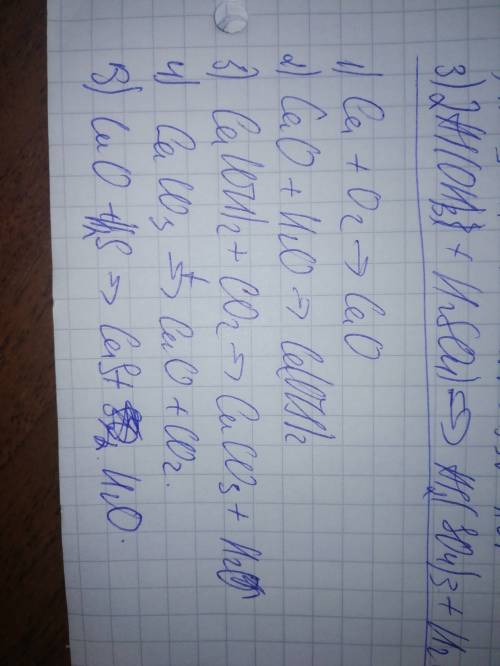 3) 2Al(OH)3 + H2SO4 → Al2(SO4)3 + H2
1) Ca + O2 → CaO
2) CaO + H2O → Ca(OH)2
3) Ca(OH)2 + CO2 → CaCO3 + H2O
4) CaCO3 →t CaO + CO2.
5) CaO + H2S → CaS + H2O.